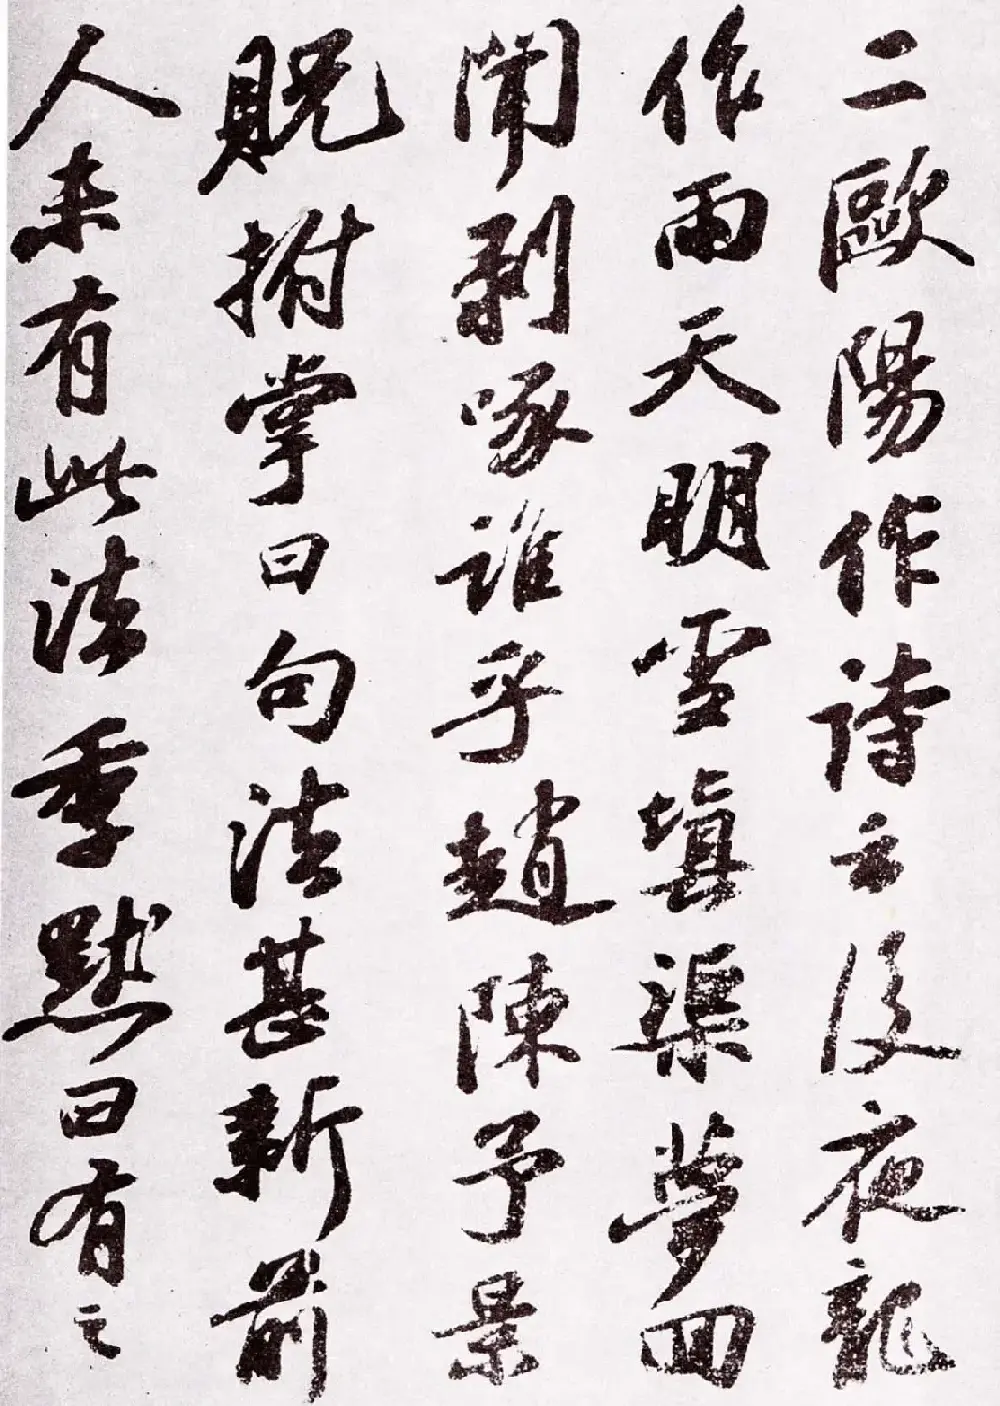 二歐陽作詩云後夜龍
作雨天明雪填渠夢回
聞剝啄誰乎趙陳予景
貺拊掌曰句法甚新前
人未有此法季默曰有之